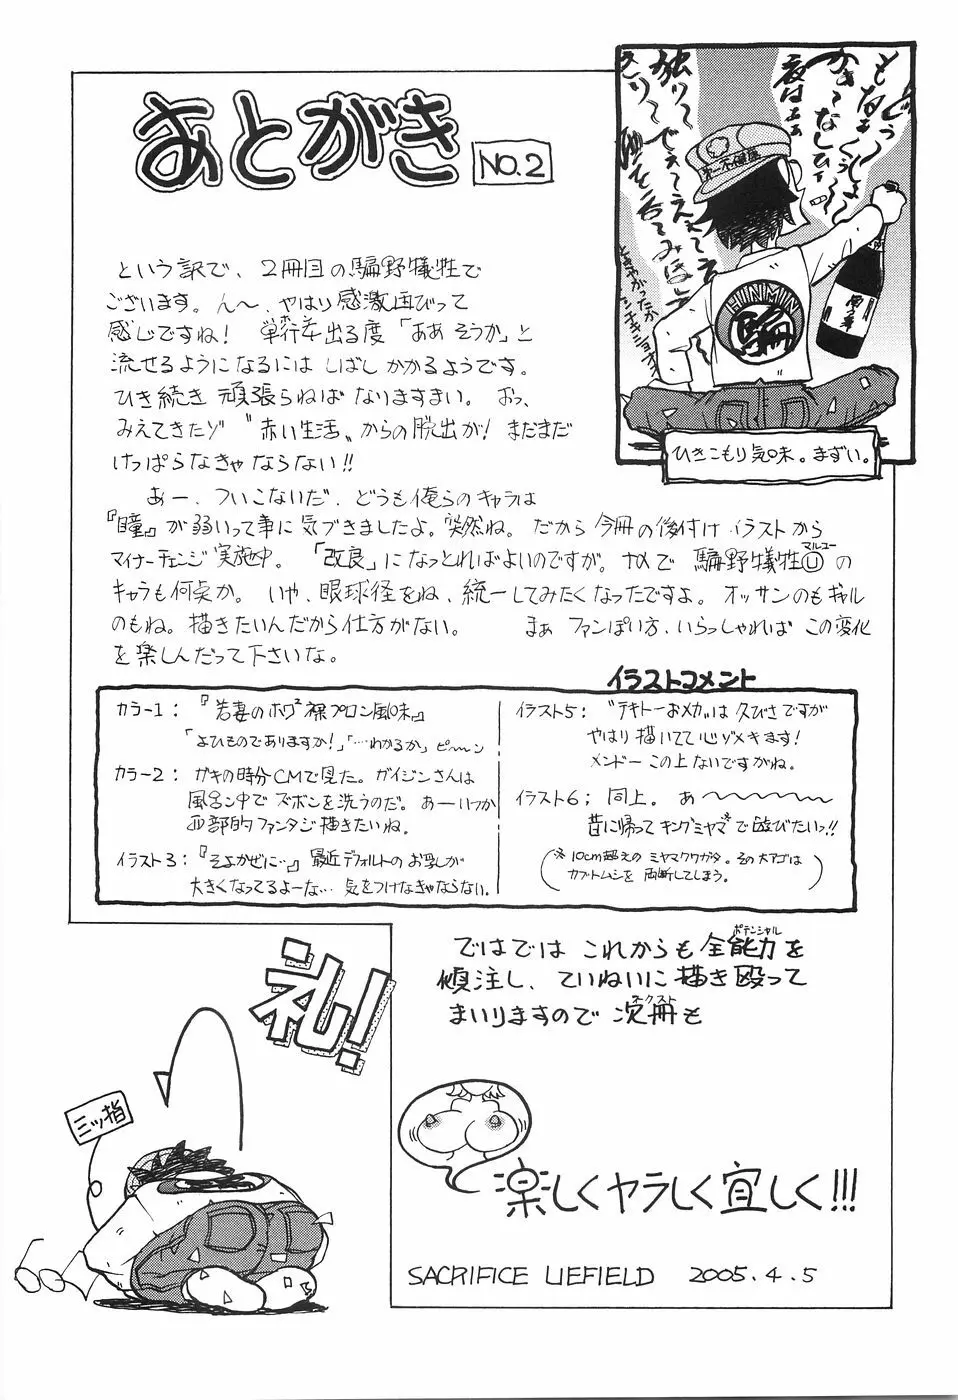 あとがき
NO.2
という訳で、2冊目の騙野犠牲で
ございます。ん~、やはり感激曲びって
感じですね! 単行本出る度「ああ そうか」と
流せるようになるには しばし かかるようです。
ひき続き 頑張らねば なりますまい。おっ、
みえてきたゾ "赤い生活"からの脱出が! まだまだ
けっぱらなきゃならない!!
あー、ついこないだ、どうも俺らのキャラは
『瞳』が弱いって事に気づきましたよ。突然ね。だから今冊の後付けイラストから
マイナーチェンジ実施中。「改良」になっとればよいのですが。なんで 騙野犠牲Ⓤの
マルユー
キャラも何点か。いや、眼球径をね、統一してみたくなったですよ。オッサンのもギャル
のもね。描きたいんだから仕方がない。 まぁ ファンぽい方、いらっしゃれば この変化
を楽しんだって下さいな。
ひきこもり気味。まずい。
イラストコメント
カラー1: 『若妻のホワ² 裸プロン風味』
「よひものでありますか!」「…わかるか」ピーン
カラー2: ガキの時分CMで見た。ガイジンさんは
風呂ン中で ズボンを洗うのだ。あーいつか
西部的ファンタジ描きたいね。
イラスト3:『そよかぜに…』最近デフォルトのお乳が
大きくなってるよーな… 気をつけなきゃならない。
イラスト5: "テキトーおメカ"は久びさですが
やはり描いてて心ゾメキます!
メンドー この上ないですがね。
イラスト6; 同上。あ~~~~~~
昔に帰って キングミヤマ※で遊びたいっ!!
(※10cm超えのミヤマクワガタ。その大アゴは
カブトムシを両断してしまう。)
ではでは これからも 全能力を
ポテンシャル
傾注し、ていねいに描き殴って
まいりますので 次冊も
ネクスト
礼!
三ツ指
楽しくヤラしく宜しく!!!
SACRIFICE LIEFIELD 2005.4.5